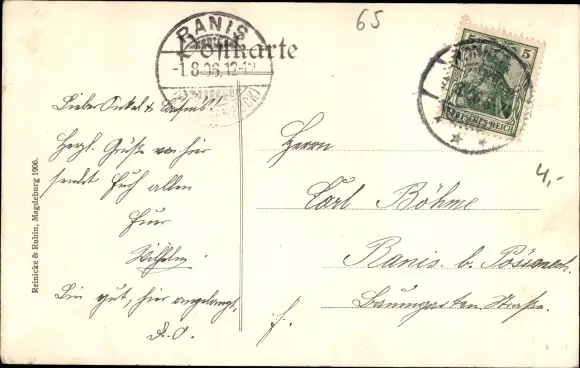 65
Postkarte
RANIS
-1.8.06.12-1N
5
DEUTSCHES REICH
4,-
Lieber Onkel &
Herzl. Grüße von hier
sendet Euch allen
Euer
Wilhelm.
Bin gut, hier angelangt.
D. O.
Herrn
Carl Böhme
Ranis b. Pössneck.
Baumgarten Straße.
Reinicke & Rubin, Magdeburg 1906.